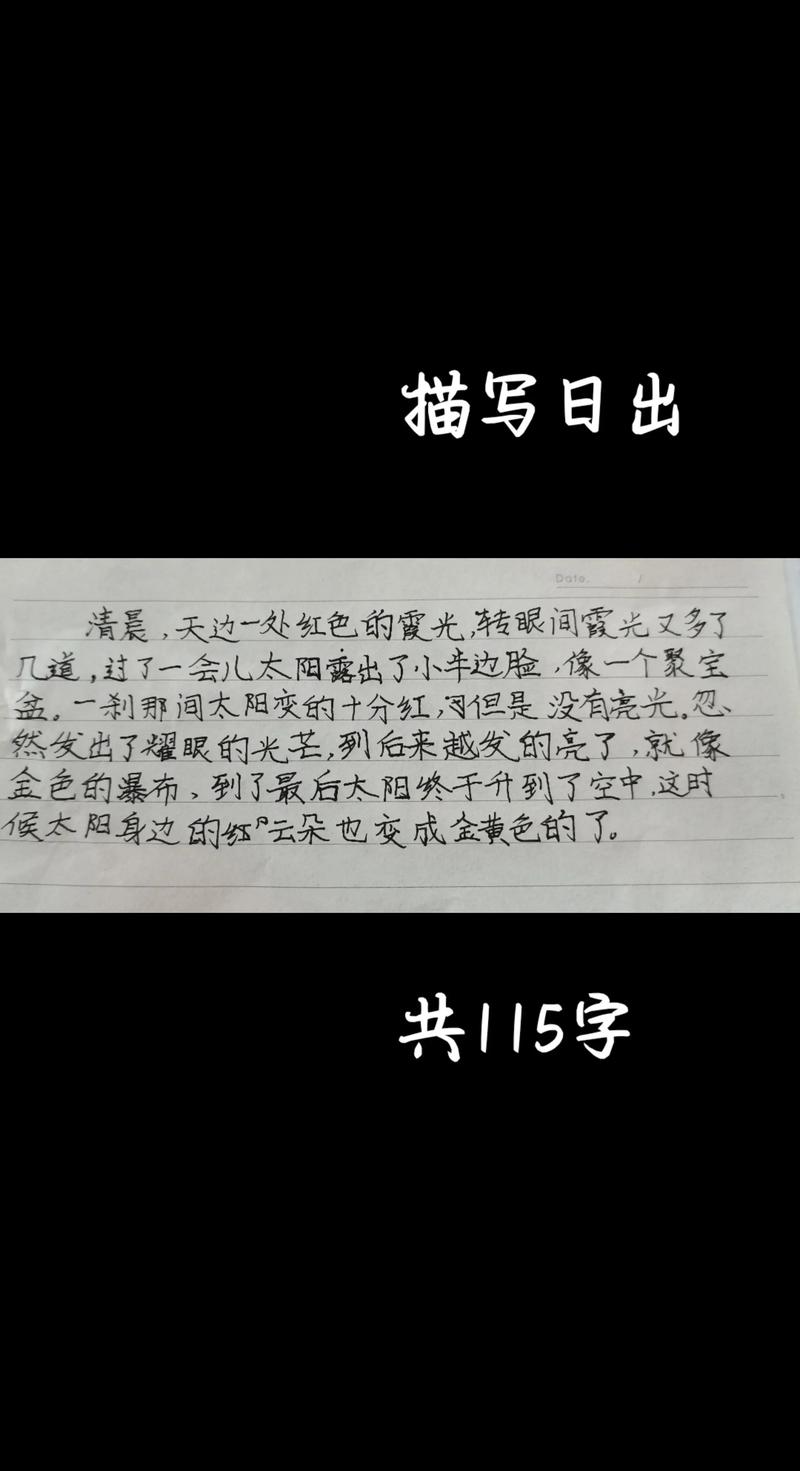 描写日出
Date. /
清晨，天边一处红色的霞光，转眼间霞光又多了
几道，过了一会儿太阳露出了小半边脸，像一个聚宝
盆。一刹那间太阳变的十分红，但是没有亮光。忽
然发出了耀眼的光芒，到后来越发的亮了，就像
金色的瀑布、到了最后太阳终于升到了空中，这时
候太阳身边的红云朵也变成金黄色的了。
共115字